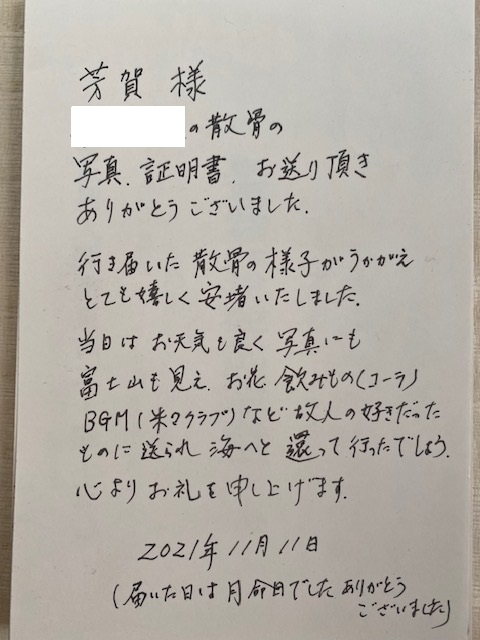 芳賀 様
の散骨の
写真、証明書、お送り頂き
ありがとうございました。
行き届いた 散骨の様子がうかがえ
とても嬉しく安堵いたしました。
当日は お天気も良く 写真にも
富士山も見え、お花、飲みもの(コーラ)
BGM(米米クラブ)など故人の好きだった
ものに送られ 海へと 還って行ったでしょう。
心より お礼を申し上げます。
2021年 11月 11日
(届いた日は月命日でした ありがとう
ございました)